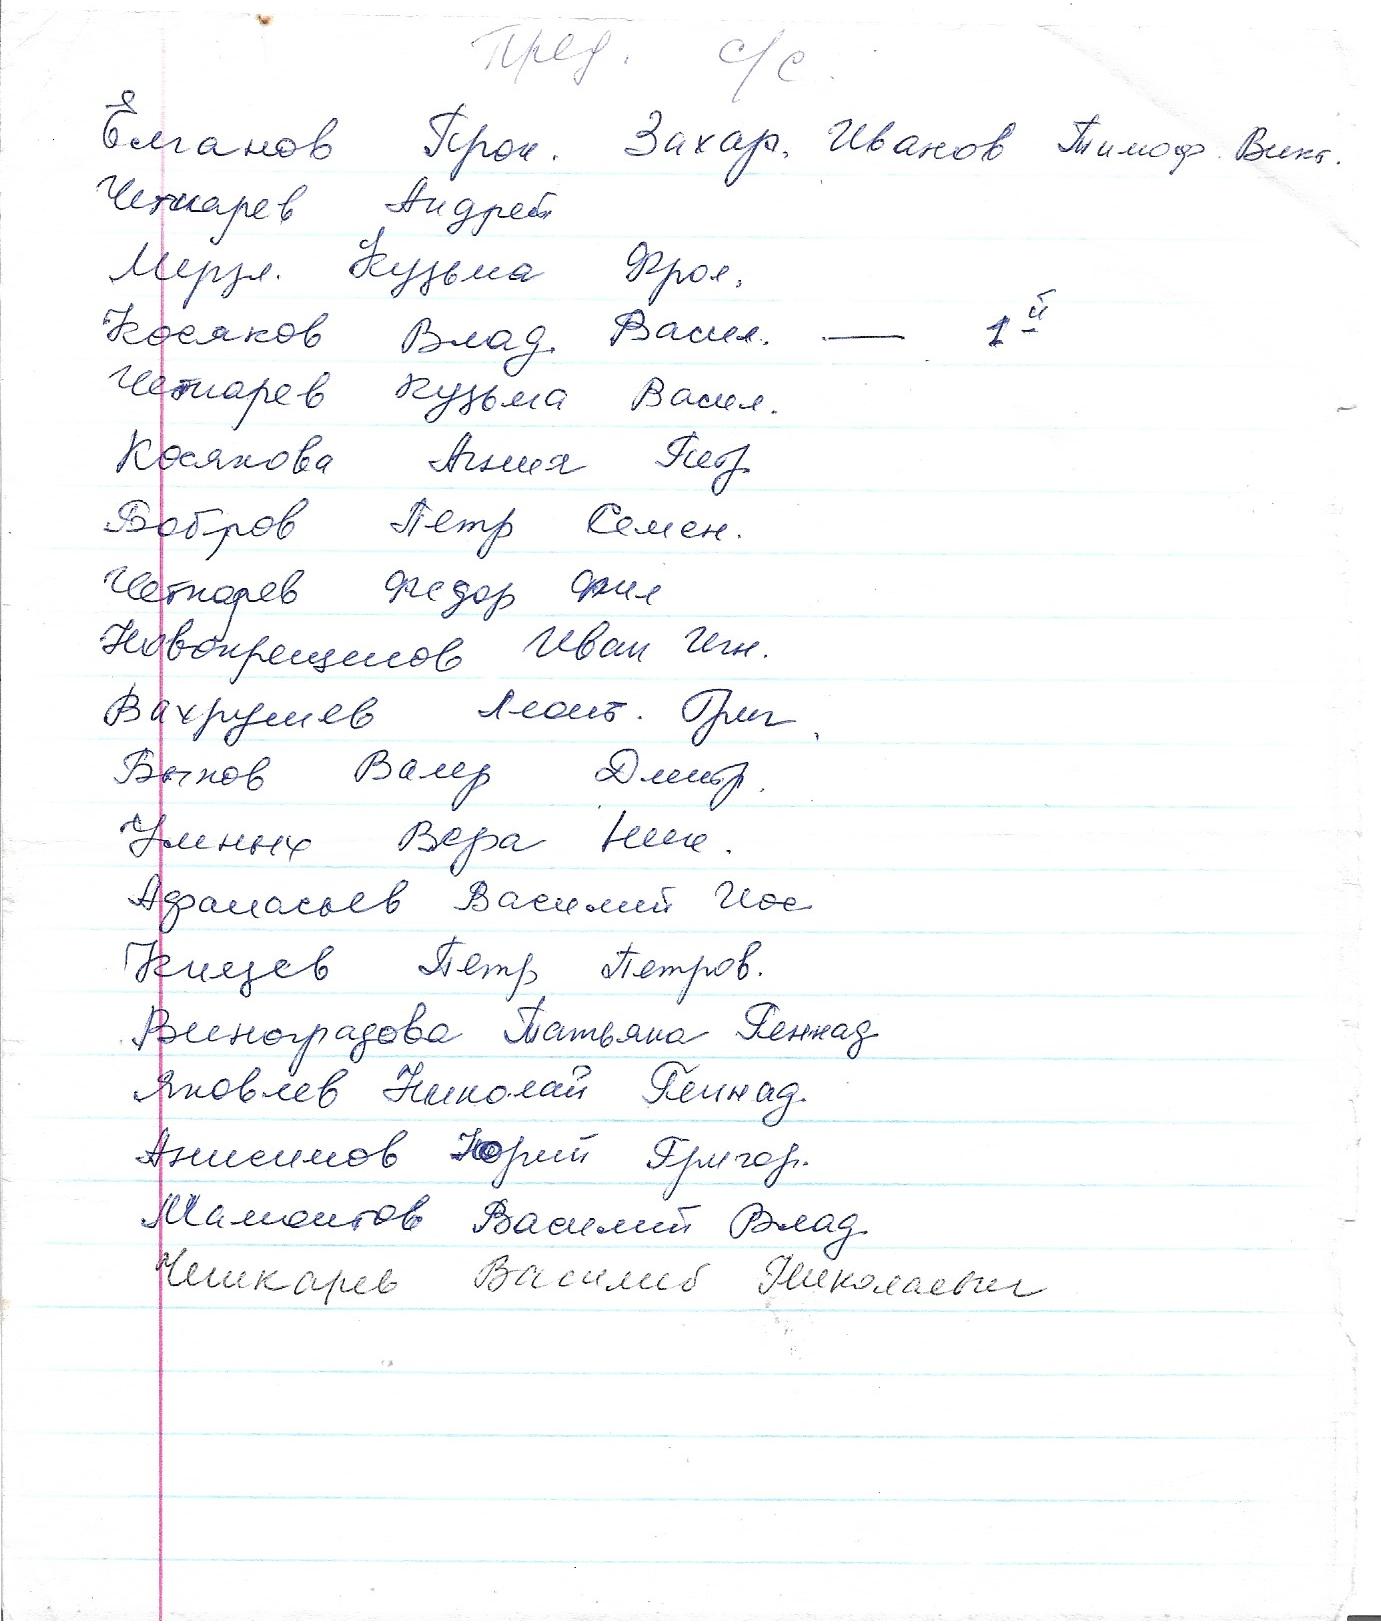 Пред. с/с.
Ёлганов Прок. Захар. Иванов Тимоф. Викт.
Четкарев Андрей
Мерзл. Кузьма Фрол.
Косяков Влад. Васил. — 1й
Четкарев Кузьма Васил.
Косякова Агния Петр.
Бобров Петр Семен.
Четкарев Федор Фил
Новокрещинов Иван Игн.
Вахрушев Леонт. Григ.
Быков Валер Дмитр.
Умных Вера Ник.
Афанасьев Василий Иос
Кощев Петр Петров.
Виноградова Татьяна Геннад
Яковлев Николай Геннад.
Анисимов Юрий Григор.
Мамонтов Василий Влад.
Чешкарев Василий Николаевич